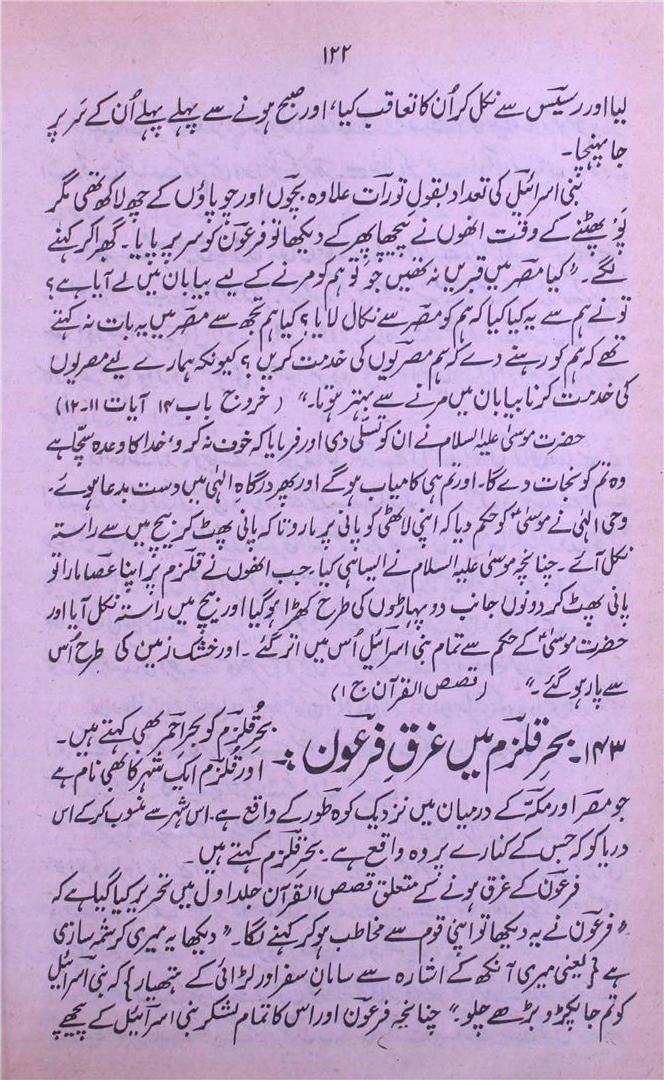 ۱۲۲
لیا اور رسیس سے نکل کر اُن کا تعاقب کیا، اور صبح ہونے سے پہلے پہلے اُن کے سَر پر
جا پہنچا۔
بنی اسرائیل کی تعداد بقول تورات علاوہ بچّوں اور چوپاؤں کے چھ لاکھ تھی مگر
پَو پھٹنے کے وقت انھوں نے پیچھا پھر کے دیکھا تو فرعون کو سر پر پایا۔ گھبرا کر کہنے
لگے۔ "کیا مصر میں قبریں نہ تھیں جو تُو ہم کو مرنے کے لیے بیابان میں لے آیا ہے؟
تو نے ہم سے یہ کیا کیا کہ ہم کو مصر سے نکال لایا؟ کیا ہم تجھ سے مصر میں یہ بات نہ کہتے
تھے کہ ہم کو رہنے دے کہ ہم مصریوں کی خدمت کریں؟ کیونکہ ہمارے لیے مصریوں
کی خدمت کرنا بیابان میں مرنے سے بہتر ہوتا۔" (خروج باب ۱۴ آیات ۱۱-۱۲)
حضرت موسیٰ علیہ السلام نے ان کو تسلی دی اور فرمایا کہ خوف نہ کرو، خدا کا وعدہ سچّا ہے
وہ تم کو نجات دے گا۔ اور تم ہی کامیاب ہو گے اور پھر درگاہِ الٰہی میں دست بدعا ہوئے۔
وحی الٰہی نے موسیٰؑ کو حکم دیا کہ اپنی لاٹھی کو پانی پر مارو تا کہ پانی پھٹ کر بیچ میں سے راستہ
نکل آئے۔ چنانچہ موسیٰ علیہ السلام نے ایسا ہی کیا۔ جب انھوں نے قلزم پر اپنا عصا مارا تو
پانی پھٹ کر دونوں جانب دو پہاڑوں کی طرح کھڑا ہو گیا اور بیچ میں راستہ نکل آیا اور
حضرت موسیٰؑ کے حکم سے تمام بنی اسرائیل اُس میں اتر گئے۔ اور خشک زمین کی طرح اُس
سے پار ہو گئے۔" (قصص القرآن ج ۱)
۱۴۳۔ بحرِ قلزم میں غرقِ فرعون :۔ بحرِ قُلزم کو بحرِ احمر بھی کہتے ہیں۔
اور قُلزم ایک شہر کا بھی نام ہے
جو مصر اور مکہ کے درمیان میں نزدیک کوہ طور کے واقع ہے۔ اس شہر سے منسوب کر کے اس
دریا کو کہ جس کے کنارے پر وہ واقع ہے۔ بحرِ قلزم کہتے ہیں۔
فرعون کے غرق ہونے کے متعلق قصص القرآن جلد اول میں تحریر کیا گیا ہے کہ
"فرعون نے یہ دیکھا تو اپنی قوم سے مخاطب ہو کر کہنے لگا۔ "دیکھا یہ میری کرشمہ سازی
ہے {یعنی میری آنکھ کے اشارہ سے سامانِ سفر اور لڑائی کے ہتھیار} کہ بنی اسرائیل
کو تم جا پکڑو بڑھے چلو۔" چنانچہ فرعون اور اس کا تمام لشکر بنی اسرائیل کے پیچھے